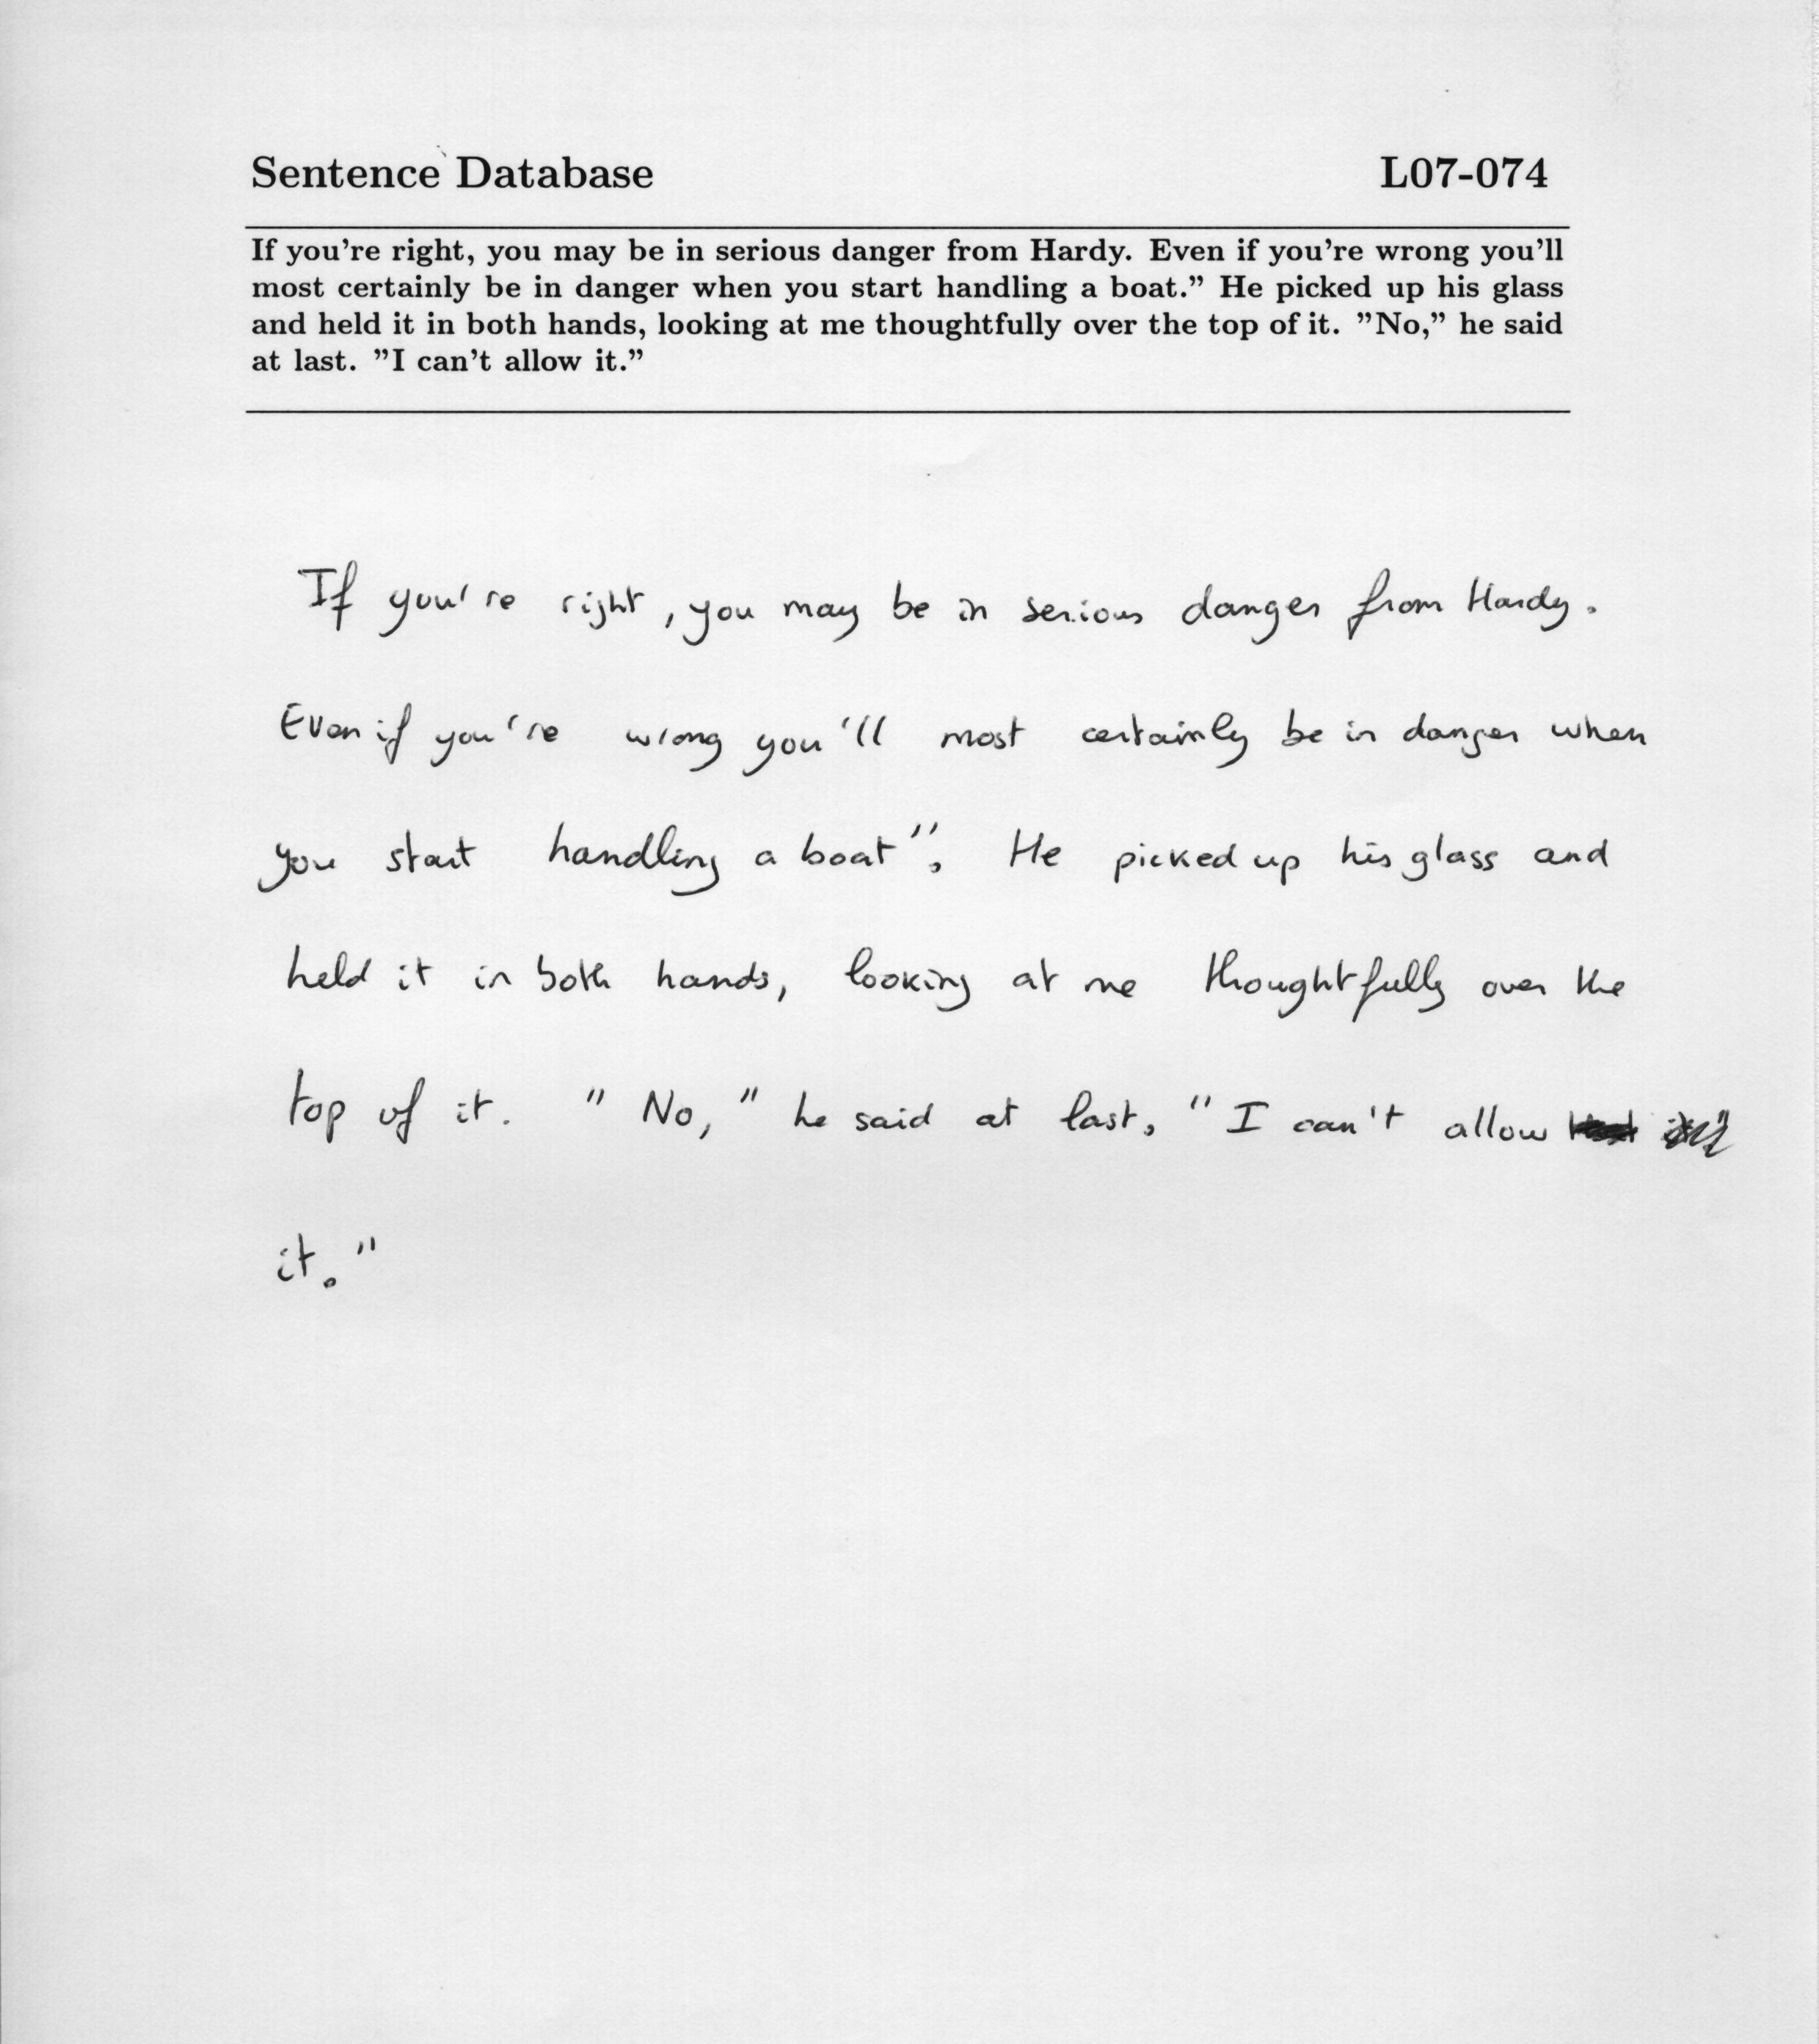 Sentence Database L07-074
If you're right, you may be in serious danger from Hardy. Even if you're wrong you'll
most certainly be in danger when you start handling a boat.” He picked up his glass
and held it in both hands, looking at me thoughtfully over the top of it. ”No,” he said
at last. ”I can't allow it.”
If you're right, you may be in serious danger from Hardy.
Even if you're wrong you'll most certainly be in danger when
you start handling a boat". He picked up his glass and
held it in both hands, looking at me thoughtfully over the
top of it. "No," he said at last. "I can't allow
it."